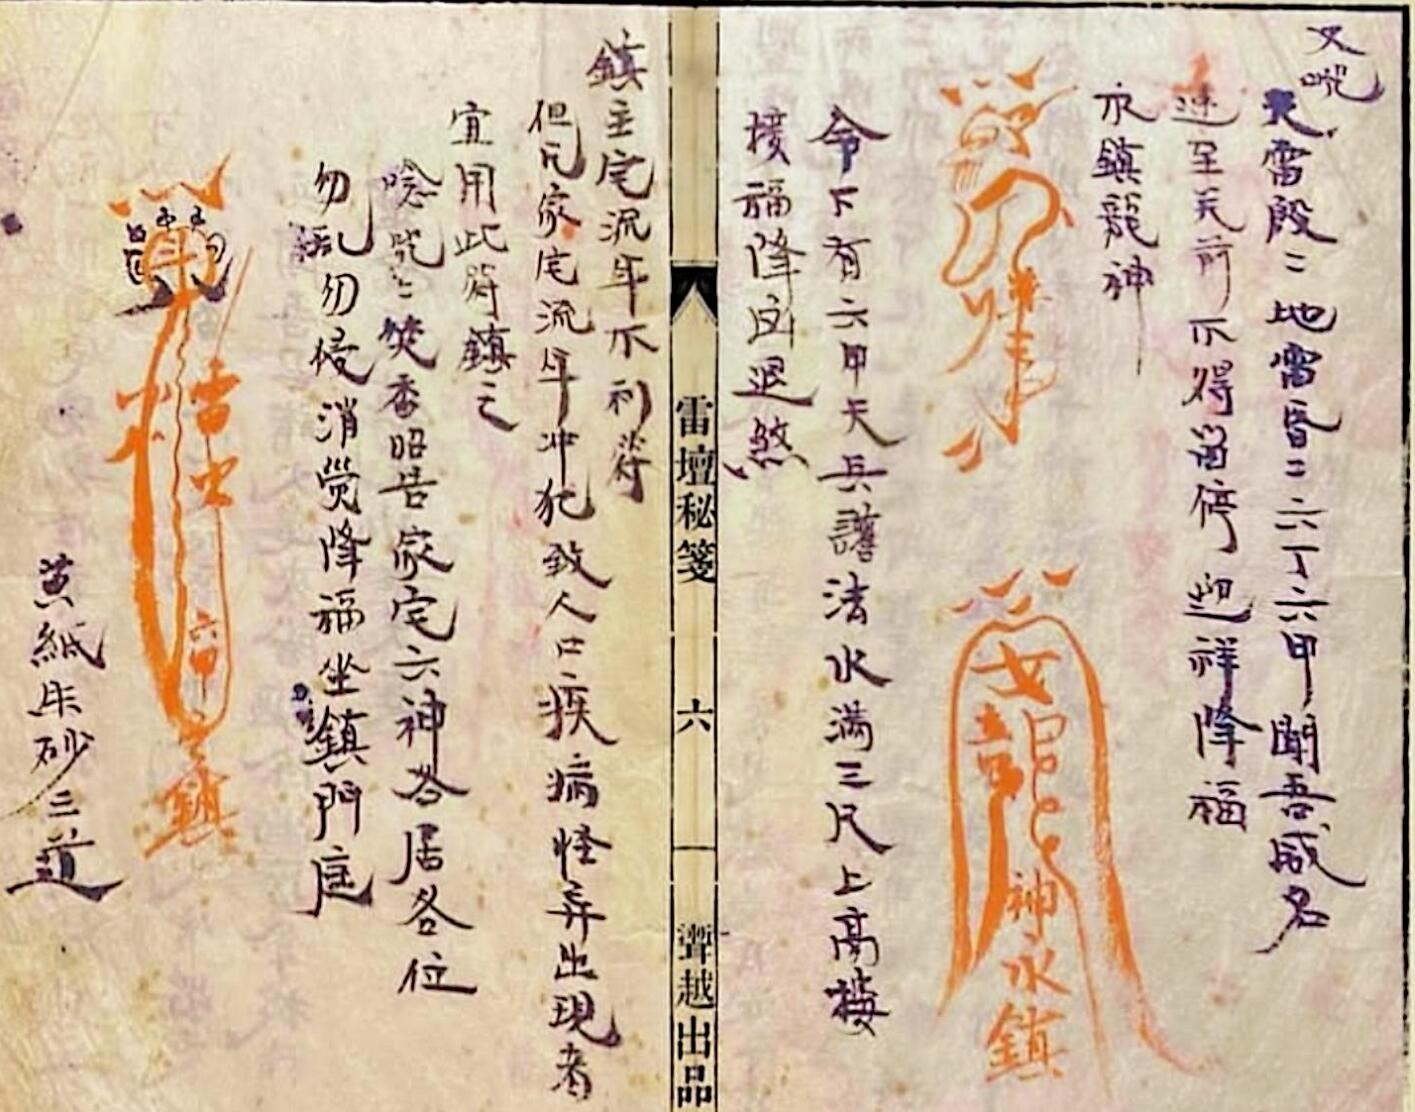 又咒
天雷殷二地雷昏二六丁六甲聞吾威名
速至关前不得留停迎祥降福
永鎮龍神
令下有六甲天兵護法水滿三尺上高楼
接福降凶退煞
女
神永鎮
雷壇秘箋
六
覃越出品
鎮主宅流年不利符
但凡家宅流年冲犯致人口疾病怪弄出現者
宜用此符鎮之
唸咒二焚香昭告家宅六神各居各位
勿乱勿侵消灾降福坐鎮門庭
雷火
六甲
鎮
黄紙朱砂三道